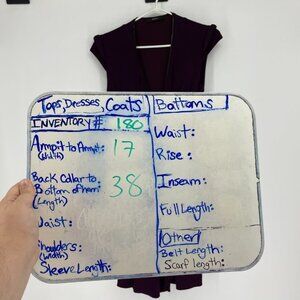 Tops, Dresses, Coats
INVENTORY # 180
Ampit to Armpit: 17
(Width)
Back Collar to
Bottom of hem: 38
(Length)
Waist:
Shoulders:
(Width)
Sleeve Length:
Bottoms
Waist:
Rise:
Inseam:
Full Length:
Other
Belt Length:
Scarf length: